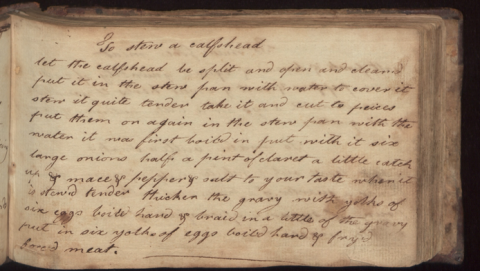 To stew a calfshead
let the calfshead be split and open and cleand
put it in the stew pan with water to cover it
stew it quite tender take it and cut to peices
put them on again in the stew pan with the
water it was first boild in put with it six
large onions half a pint of claret a little catch
up & mace & pepper & salt to your taste when it
is stewd tender thicken the gravy with yolks of
six eggs boild hard & braid in a little of the gravy
put in six yolks of eggs boild hard & fry'd
forced meat.